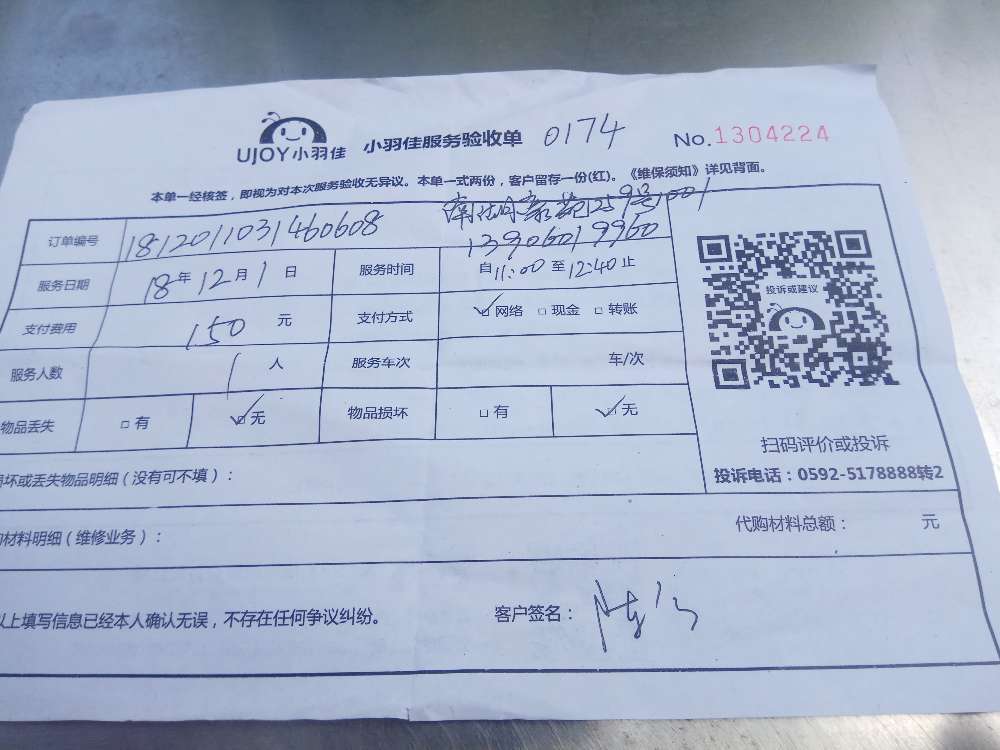 UJOY小羽佳 小羽佳服务验收单 0174 No.1304224
本单一经核签，即视为对本次服务验收无异议。本单一式两份，客户留存一份(红)。《维保须知》详见背面。
259号1001
订单编号 1812011031460608 13906019960
服务日期 18年12月1日 服务时间 自11:00至12:40止
支付费用 150元 支付方式 ☑网络 □现金 □转账
服务人数 1人 服务车次 车/次
物品丢失 □有 ☑无 物品损坏 □有 ☑无
投诉或建议
扫码评价或投诉
投诉电话：0592-5178888转2
坏或丢失物品明细（没有可不填）：
材料明细（维修业务）： 代购材料总额： 元
以上填写信息已经本人确认无误，不存在任何争议纠纷。 客户签名：